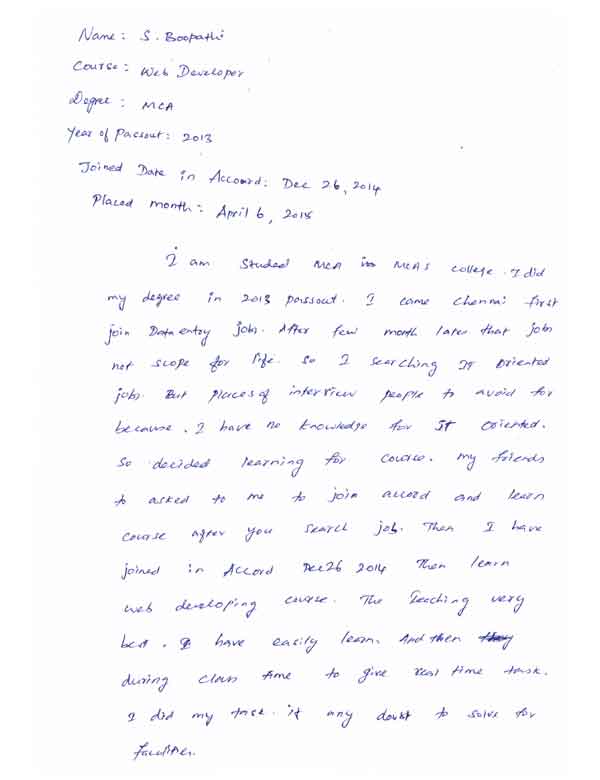 Name: S. Boopathi
Course: Web Developer
Degree: MCA
Year of Passout: 2013
Joined Date in Accord: Dec 26, 2014
Placed Month: April 6, 2015
I am studed MCA in MCAS college. I did
my degree in 2013 passout. I came chennai first
join Data entry job. After few month later that job
not scope for life. so I searching IT oriented
job. But places of interview people to avoid for
because. I have no knowledge for IT oriented.
So decided learning for course. my friends
to asked to me to join accord and learn
course after you search job. Then I have
joined in Accord Dec 26 2014 Then learn
web developing course. The Teaching very
best. I have easily learn. And then they
during class time to give real time task.
I did my task. if any doubt to solve for
faculties.